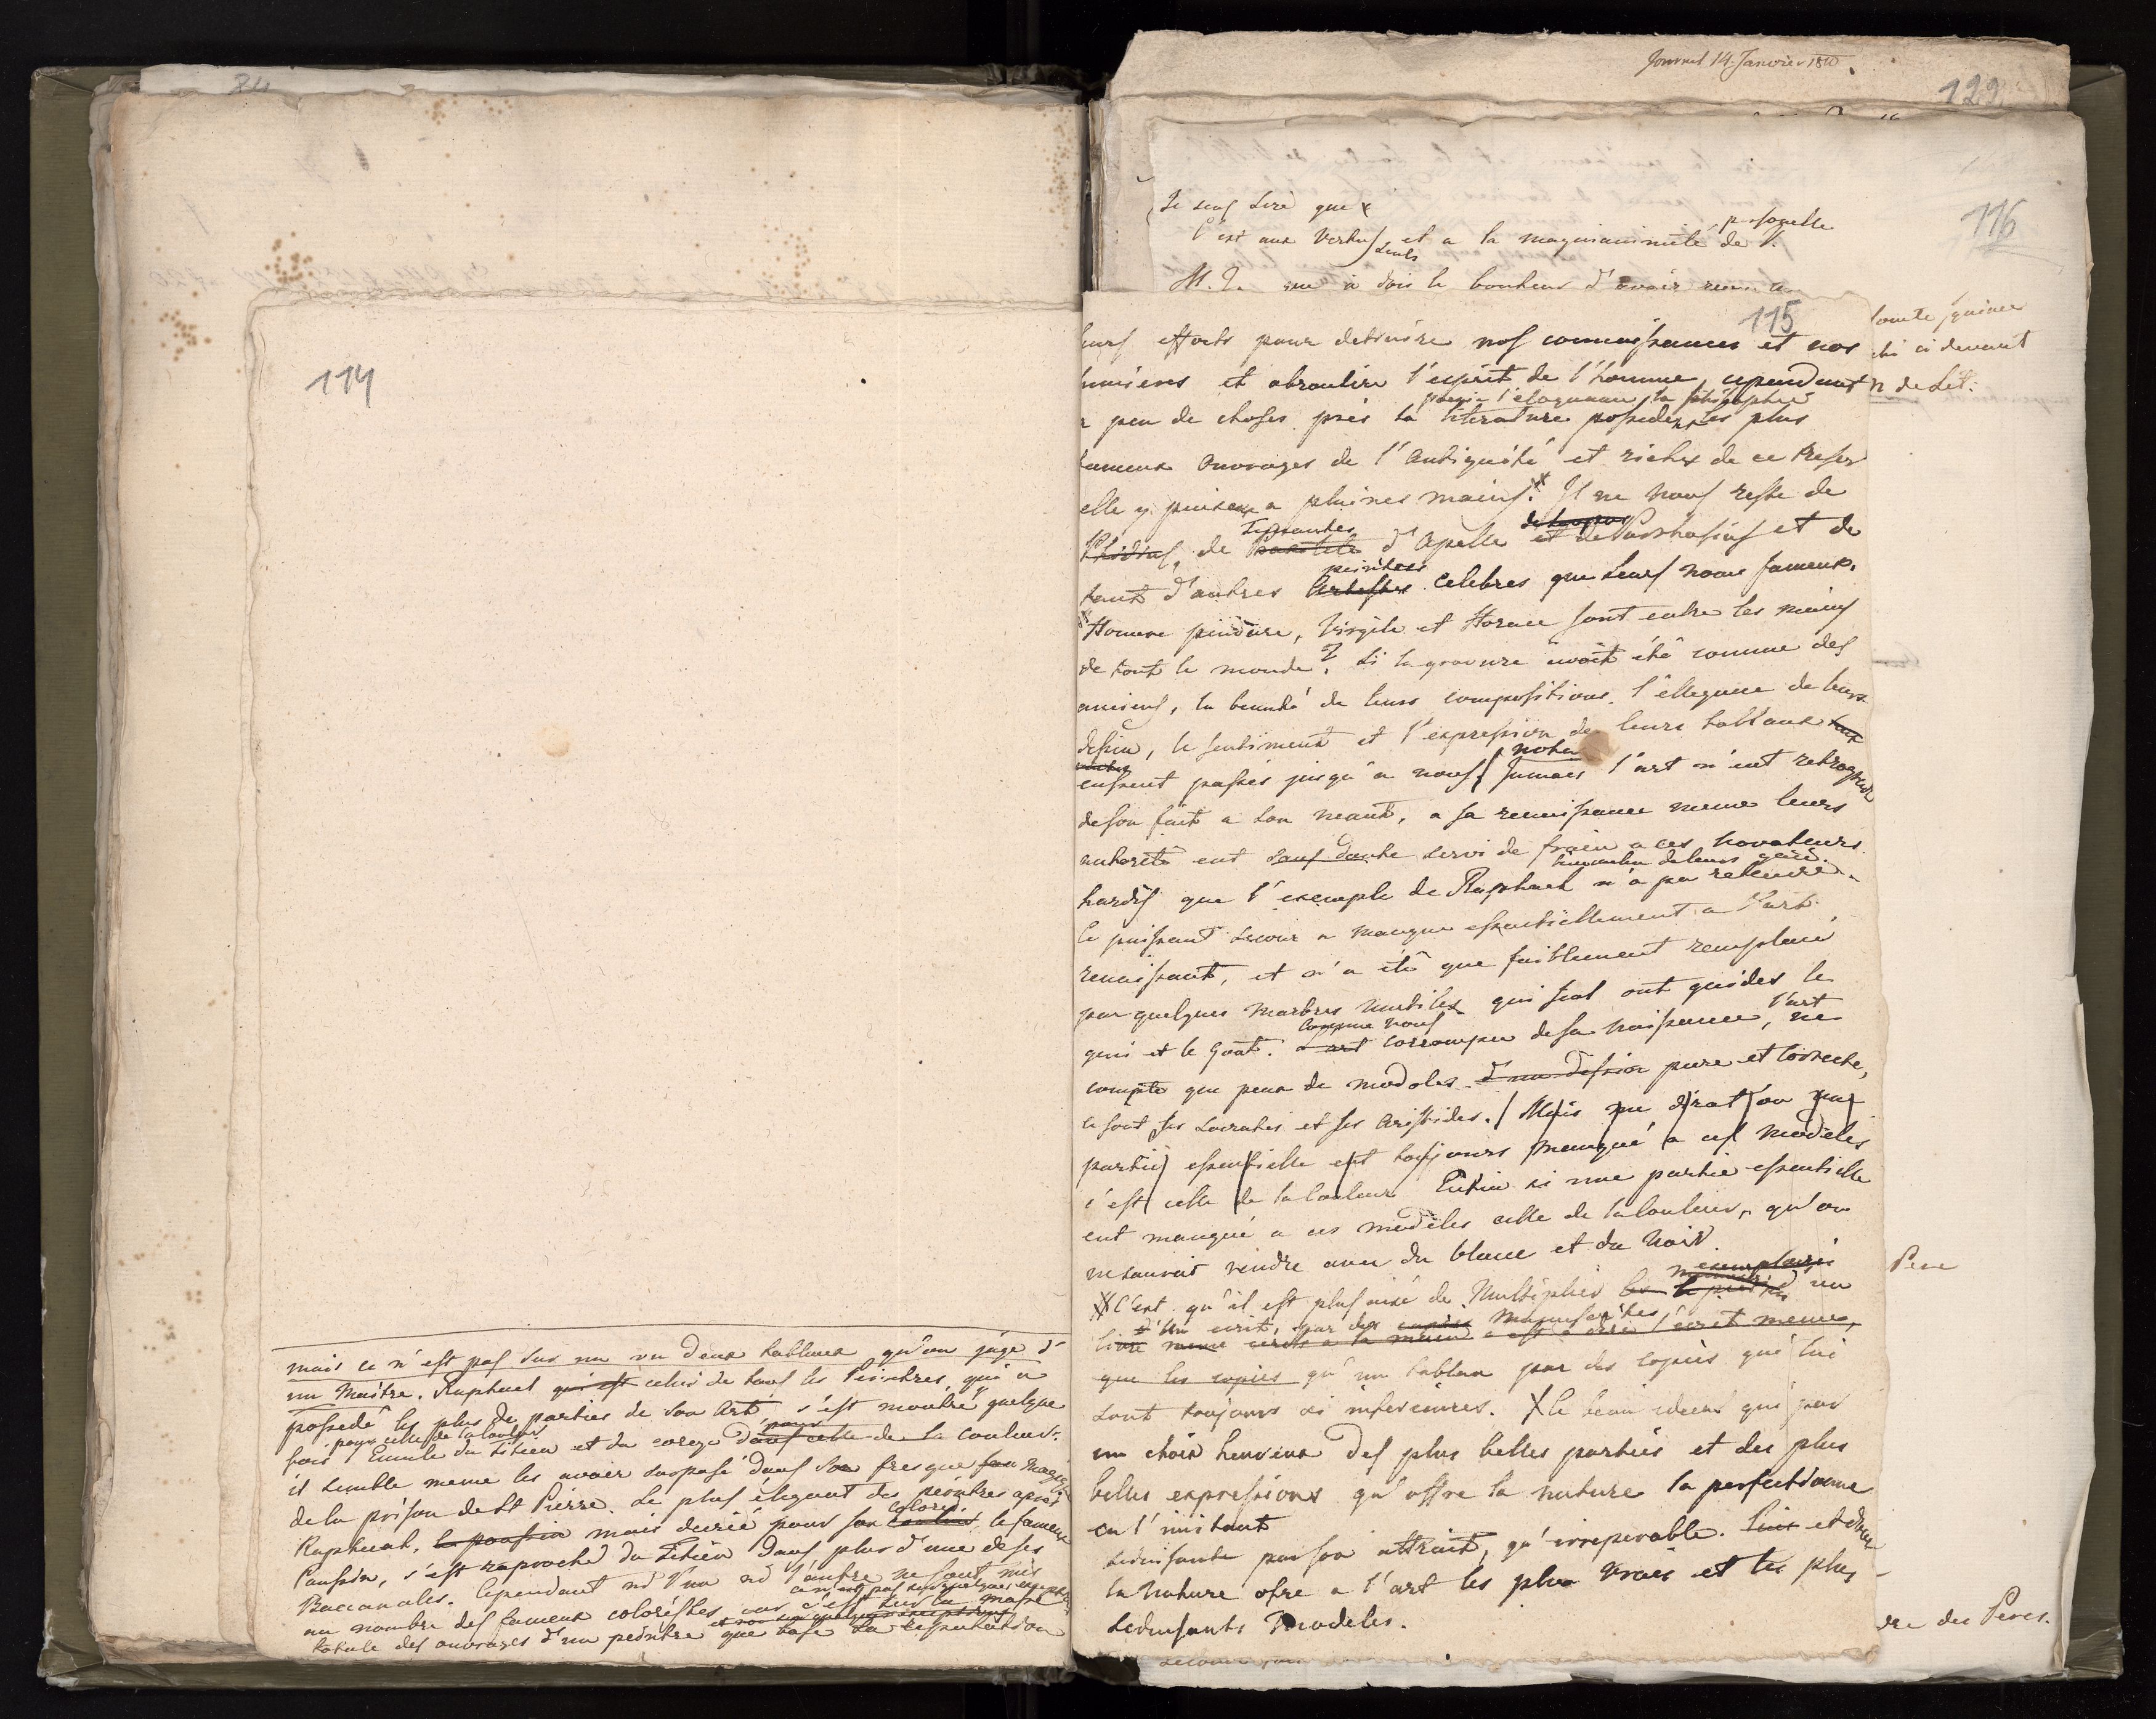 84
114
mais ce n'est pas sur un ou deux tableaux qu'on juge d'
un Maitre. Raphael qui est celui de tous les Peintres, qui a
possedé les plus de parties de son Art, s'est montré quelque
fois pour celle de la couleur Emule du Titien et du corege dans celle pour de la couleur.
il semble meme les avoir surpassé dans sa fresque
de la prison de St Pierre. Le plus élegant des peintres après
Raphael, le poussin mais decrié pour son couleur coloris le fameux
Poussin, s'est raproché du Titien dans plus d'une de ses
Baccanales. Cependant ni l'un ni l'autre ne sont mis
au nombre des fameux coloristes car c'est sur la masse
totale des ouvrages d'un peintre que base sa reputation
Journal 14. Janvier 1810.
122
116
Je sens Sire que
C'est aux Vertus seuls et a la magnanimité personelle de V.
M. I. que je dois le bonheur d'avoir
115
leurs efforts pour detruire nos connaissances et nos
lumieres et abroutire l'esprit de l'homme, cependant
a peu de choses près la literature poesie l'eloquence la philosophie possedent les plus
fameux ouvrages de l'Antiquité et riches de ce tresor
elle y puisent a pleines mains. X Il ne nous reste de
Phidias, de Praxitele Timanthes d'Apelle et de Parrhasius et de
tant d'autres Artistes peintres celebres que leurs noms fameux.
Homere pindare, Virgile et Horace sont entre les mains
de tout le monde. Si la gravure avoit été connue des
anciens, la beauté de leurs compositions, l'éllegance de leurs
dessin, le sentiment et l'expression de leurs tableaux
eussent passés jusqu'a nous. Jamais notre l'art n'eut retrogradé
de son fait a son neant, a sa renaissance meme leurs
autorité eut sans doute servi de frein a ces novateurs
hardis que l'exemple de Raphael n'a pu retenire.
Ce puissant secour a manque essentiellement a l'art
renaissant, et n'a été que faiblement remplacé
par quelques marbres mutiles qui seul ont guides le
geni et le Gout. L'art comme nous corrompu de sa naissance, l'art ne
compte que peux de modoles d'un dessin pure et correcte,
ce sont ses Socrates et ses Aristides. Mais que dirat'on une
partie essentielle est toujours manqué a ces modèles
c'est celle de la Couleur Enfin si une partie essentielle
eut manqué a ces modèles celle de la Couleur, qu'on
ne sauroit rendre avec du blanc et du noir.
X C'est qu'il est plus aisé de Multiplier les exemplaires un
livre d'un ecrit, par des copies Manuscrites c'est a dire l'ecrit meme,
que les copies qu'un tableau par des copies qui lui
sont toujours si inferieures. X le beau ideal qui par
un choix heureux des plus belles parties et des plus
belles expressions qu'offre la nature la perfectionne
en l'imitant
seduisante par son attrait, qu'irreparable.
la Nature ofre a l'art les plus vrais et les plus
seduisants Modeles.
comte
ci devant
de Lit:
Pere
dre des Peres.